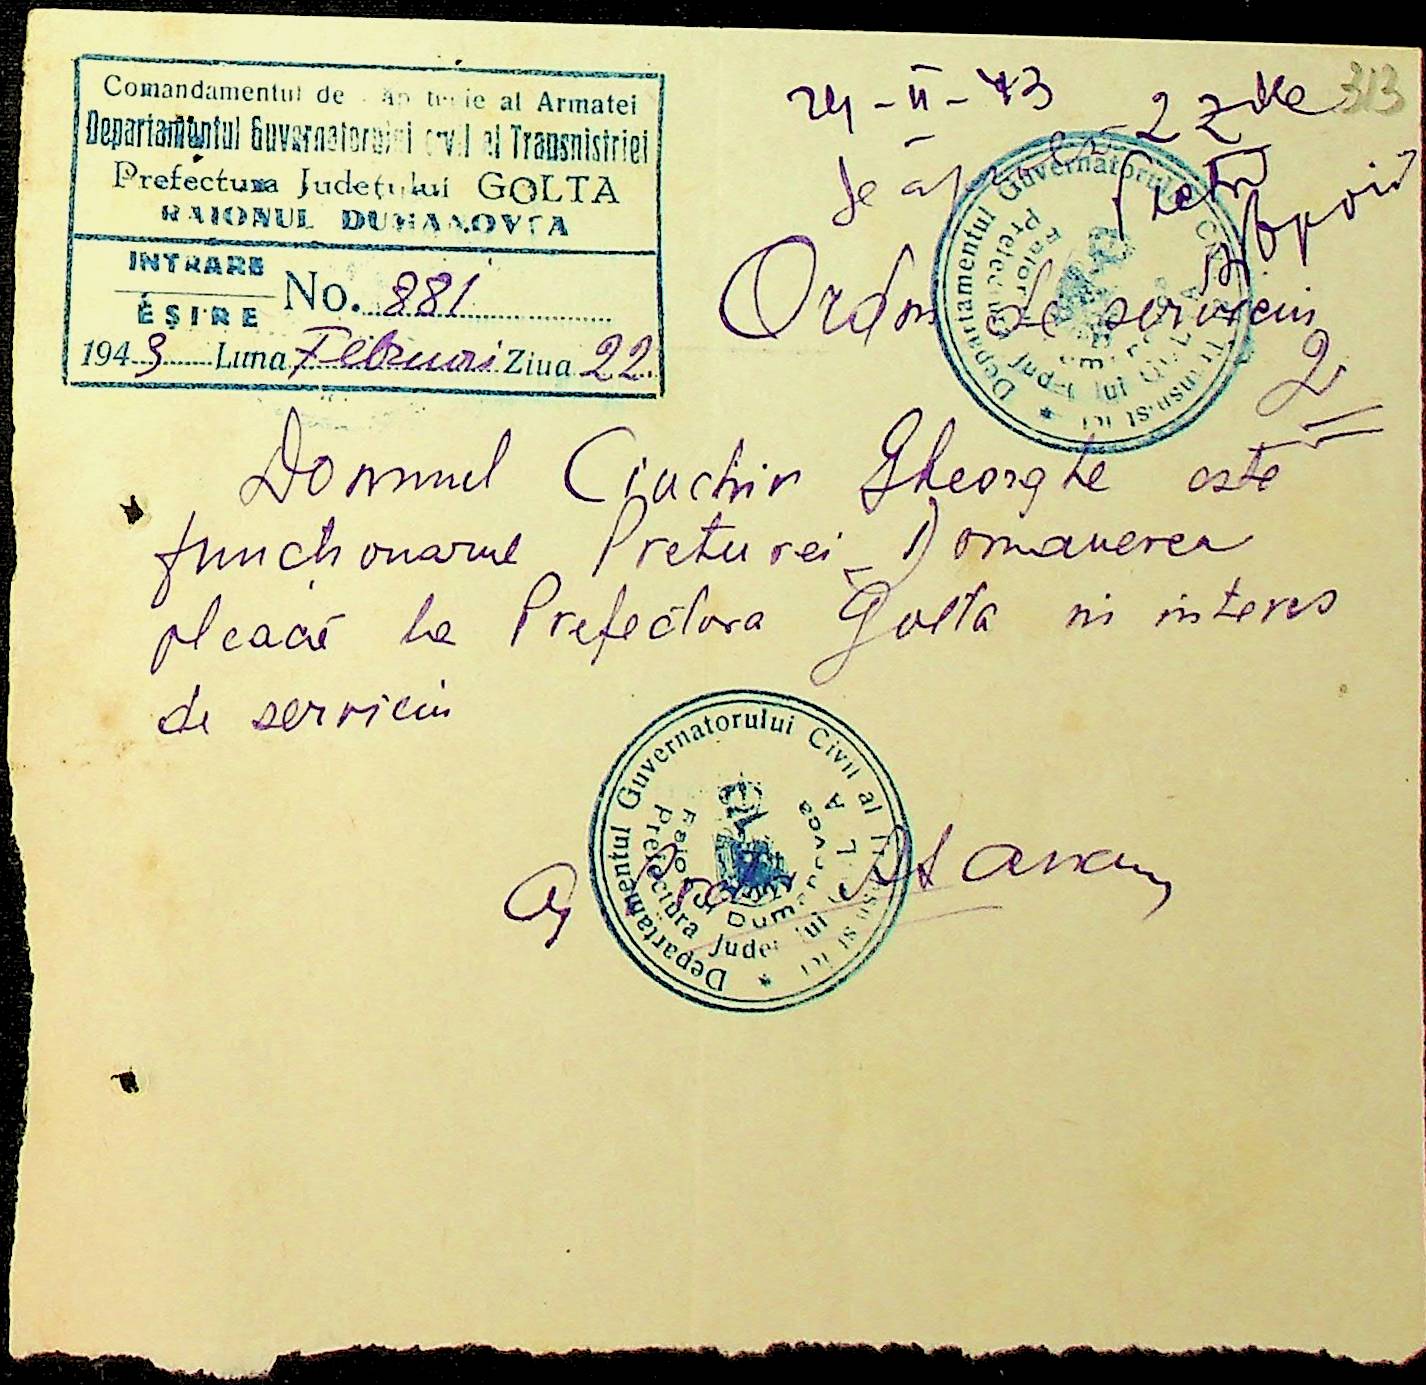 Comandamentul de al Armatei
Departamentul Guvernatorului civil al Transnistriei
Prefectura Județului GOLTA
RAIONUL DUMANOVCA
INTRARE
EȘIRE
No. 881
1943 Luna Februari Ziua 22.
24-II-43
313
Se aprobă 2 zile
Pretor
Ordin de serviciu
2
Departamentul Guvernatorului Civil al Transnistriei
Prefectura Județului GOLTA
Domnul Ciuchin Gheorghe este
funcționarul Preturei Domanevca
pleacă la Prefectura Golta in interes
de serviciu
Departamentul Guvernatorului Civil al Transnistriei
Prefectura Județului GOLTA
Raionul Dumanovca